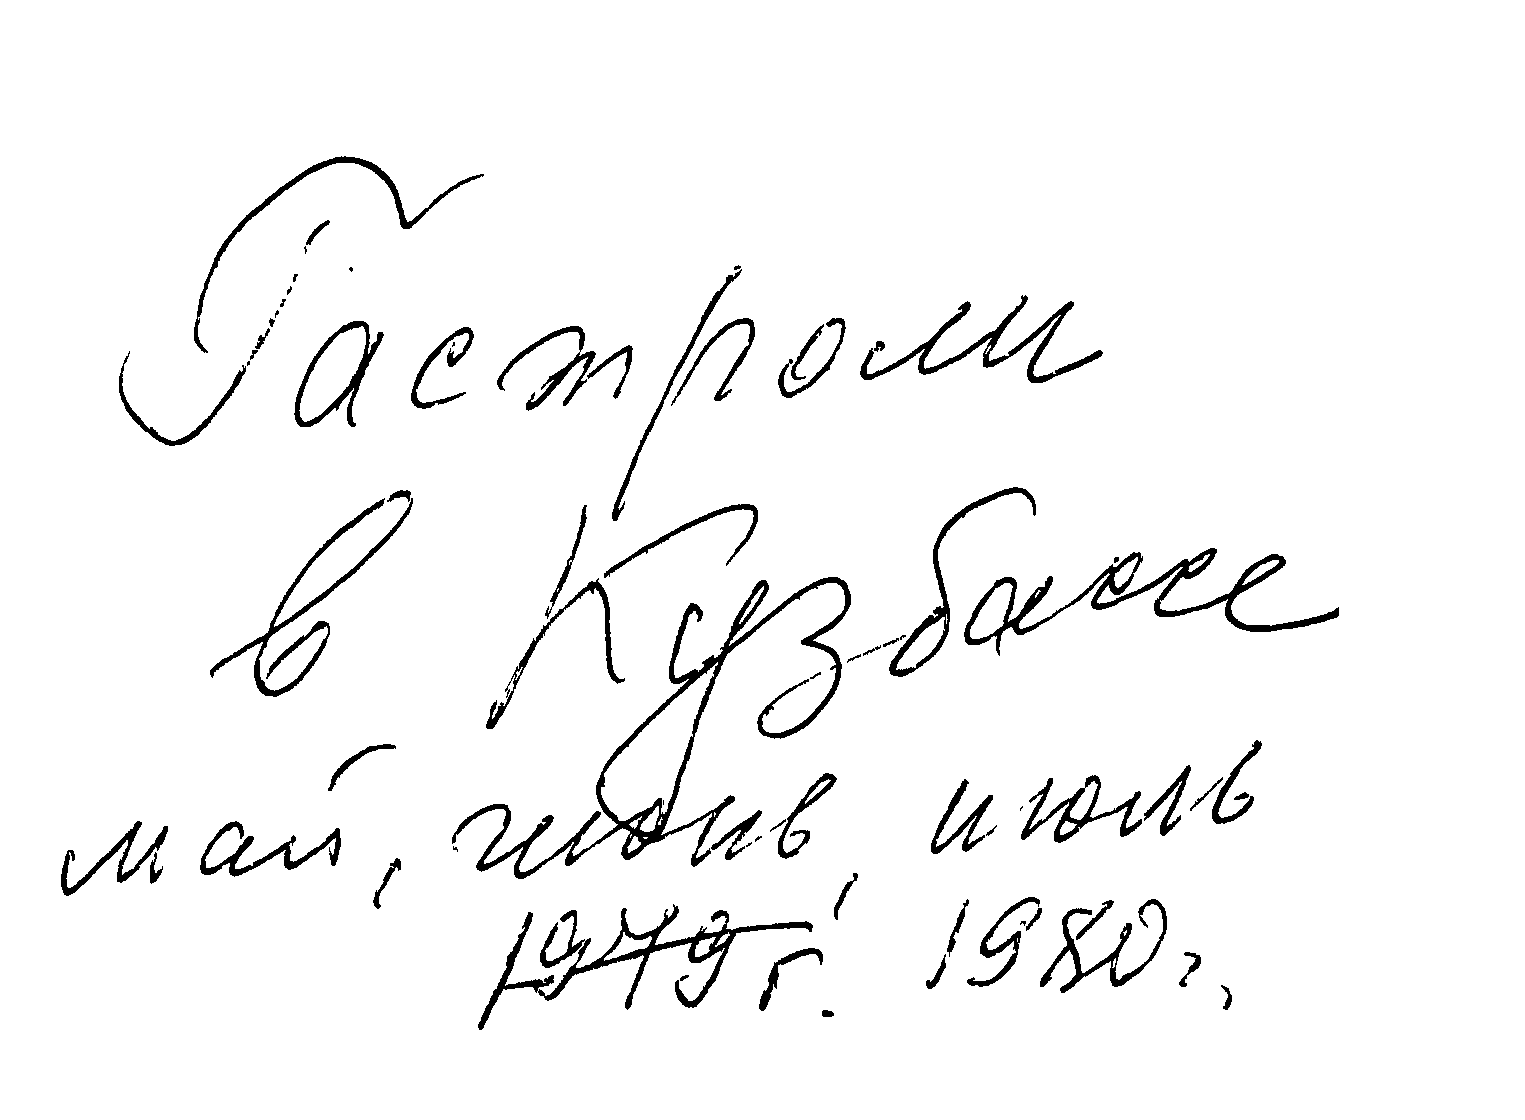 Гастроли
в Кузбассе
май, июнь, июль
1979 г. 1980 г.